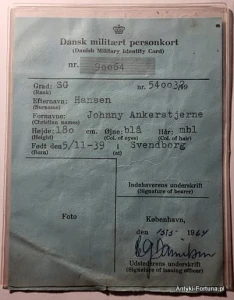 Dansk militært personkort
(Danish Military Identity Card)
nr. 90064
Grad: SG nr. 540032/49
(Rank)
Efternavn: Hansen
(Surname)
Fornavne: Johnny Ankerstjerne
(Christian names)
Højde: 180 cm. Øjne: blå Hår: mbl
(Height) (Col. of eyes) (Col. of hair)
Født den 5/11-39 i Svendborg
(Born) (at)
Indehaverens underskrift
(Signature of bearer)
Foto
København,
den 13/5 1964
Udstederens underskrift
(Signature of issuing officer)
Antyki-Fortuna.pl